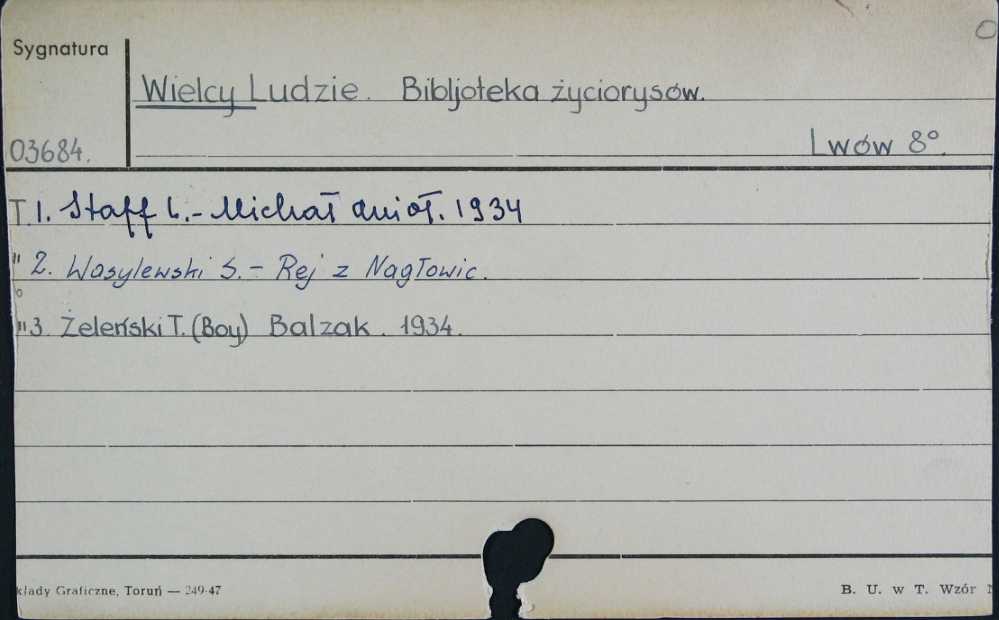 Sygnatura
Wielcy Ludzie. Bibljoteka życiorysów.
03684.
Lwów 8°.
T. 1. Staff L.- Michał Anioł. 1934
" 2. Wasylewski S. - Rej z Nagłowic.
" 3. Żeleński T. (Boy) Balzak. 1934.
kłady Graficzne, Toruń — 249-47
B. U. w T. Wzór